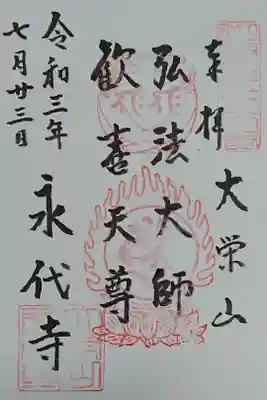 奉拝 大栄山
弘法大師
歓喜天尊
永代寺
令和三年
七月廿三日